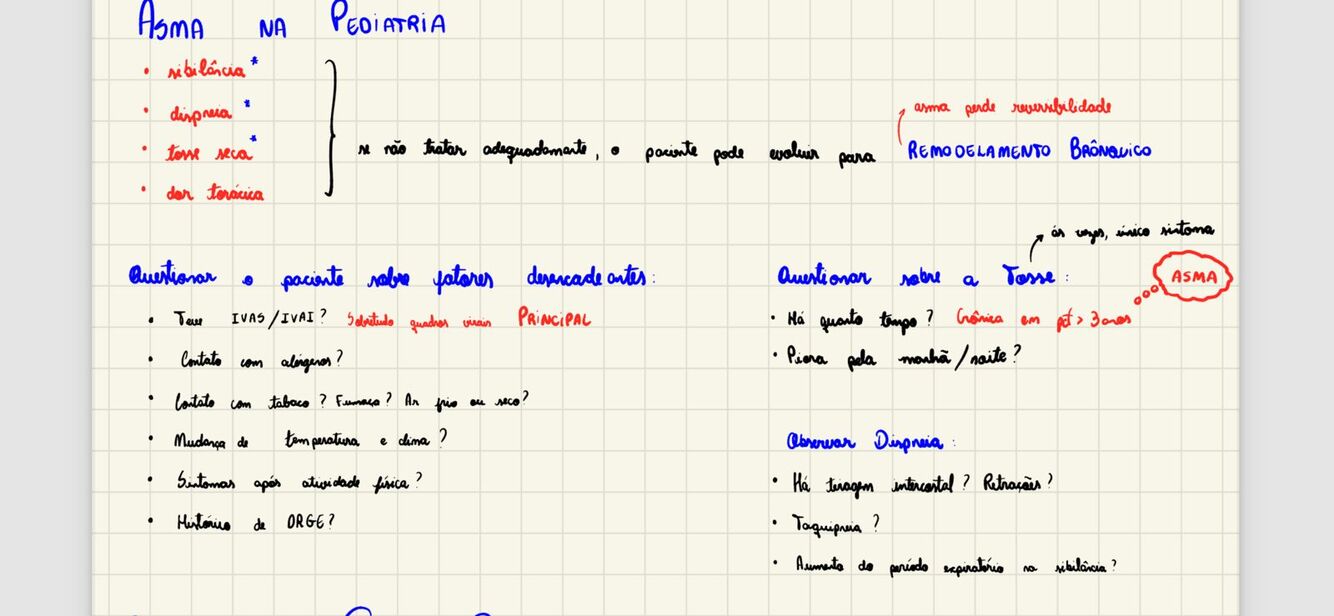 ASMA NA PEDIATRIA
• sibilância*
• dispneia*
• tosse seca*
• dor torácica
se não tratar adequadamente, o paciente pode evoluir para REMODELAMENTO BRÔNQUICO
asma perde reversibilidade
Questionar o paciente sobre fatores desencadeantes:
• Teve IVAS/IVAI? Sobretudo quadros virais PRINCIPAL
• Contato com alérgenos?
• Contato com tabaco? Fumaça? Ar frio ou seco?
• Mudança de temperatura e clima?
• Sintomas após atividade física?
• Histórico de DRGE?
Questionar sobre a Tosse:
às vezes, único sintoma
• Há quanto tempo? Crônica em pct > 3 anos
ASMA
• Piora pela manhã/noite?
Observar Dispneia:
• Há tiragem intercostal? Retrações?
• Taquipneia?
• Aumento do período expiratório na sibilância?